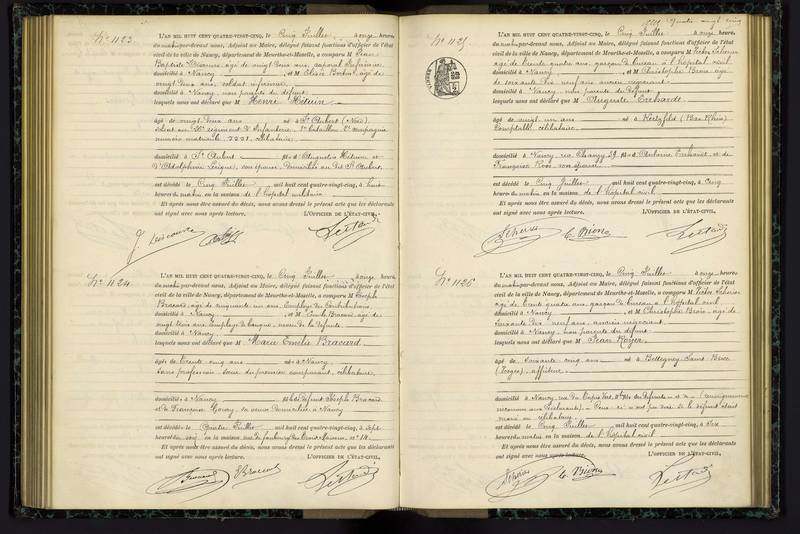 No 1123.
L'AN MIL HUIT CENT QUATRE-VINGT-CINQ, le Cinq Juillet à onze heures
du matin par-devant nous, Adjoint au Maire, délégué faisant fonctions d'officier de l'état
civil de la ville de Nancy, département de Meurthe-et-Moselle, a comparu M Jean
Baptiste agé de vingt deux ans, caporal infirmier
domicilié à Nancy, et M Elisée agé de
vingt deux ans, soldat infirmier
domicilié à Nancy, non parents du défunt
lesquels nous ont déclaré que M Henri Hétuin
âgé de vingt deux ans né à St Aubert (Nord)
soldat au régiment d'Infanterie, bataillon, compagnie
numéro matricule célibataire
domicilié à St Aubert fils d'Augustin Hétuin et
d'Adolphine son épouse, domiciliés au dit St Aubert,
est décédé le Cinq Juillet mil huit cent quatre-vingt-cinq, à huit
heures du matin en la maison de l'hopital militaire
Et après nous être assuré du décès, nous avons dressé le présent acte que les déclarants
ont signé avec nous après lecture. L'OFFICIER DE L'ÉTAT-CIVIL,
No 1124.
L'AN MIL HUIT CENT QUATRE-VINGT-CINQ, le Cinq Juillet à onze heures
du matin par-devant nous, Adjoint au Maire, délégué faisant fonctions d'officier de l'état
civil de la ville de Nancy, département de Meurthe-et-Moselle, a comparu M Joseph
Bracard, agé de cinquante un ans, Employé des Contributions,
domicilié à Nancy, et M Emile Bracard, agé de
vingt trois ans Employé de banque, neveu de la défunte
domicilié à Nancy
lesquels nous ont déclaré que M Marie Emélie Bracard
âgée de trente cinq ans née à Nancy
sans profession, soeur du premier comparant, célibataire,
domiciliée à Nancy fille de défunt Joseph Bracard
et de Françoise sa veuve domiciliée à Nancy
est décédée le Quatre Juillet mil huit cent quatre-vingt-cinq, à sept
heures du soir en la maison rue du faubourg des Trois Maisons, no 14
Et après nous être assuré du décès, nous avons dressé le présent acte que les déclarants
ont signé avec nous après lecture. L'OFFICIER DE L'ÉTAT-CIVIL,
Bracard
quatre vingt cinq
No 1125.
L'AN MIL HUIT CENT QUATRE-VINGT-CINQ, le Cinq Juillet à onze heures
du matin par-devant nous, Adjoint au Maire, délégué faisant fonctions d'officier de l'état
civil de la ville de Nancy, département de Meurthe-et-Moselle, a comparu M Victor
agé de trente quatre ans, garçon de bureau à l'hopital civil
domicilié à Nancy, et M Christophe agé
de soixante dix neuf ans ancien négociant
domicilié à Nancy, non parents du défunt
lesquels nous ont déclaré que M Auguste Erchardt
âgé de vingt un ans né à Kertzfeld (Bas Rhin)
Comptable célibataire
domicilié à Nancy, rue Chanzy, 29 fils d'Antoine Erchardt et de
Françoise Ross son épouse
est décédé le Cinq Juillet mil huit cent quatre-vingt-cinq, à Cinq
heures du matin en la maison de l'hopital civil
Et après nous être assuré du décès, nous avons dressé le présent acte que les déclarants
ont signé avec nous après lecture. L'OFFICIER DE L'ÉTAT-CIVIL,
No 1126.
L'AN MIL HUIT CENT QUATRE-VINGT-CINQ, le Cinq Juillet à onze heures
du matin par-devant nous, Adjoint au Maire, délégué faisant fonctions d'officier de l'état
civil de la ville de Nancy, département de Meurthe-et-Moselle, a comparu M Victor
agé de trente quatre ans, garçon de bureau à l'hopital civil,
domicilié à Nancy, et M Christophe agé de
soixante dix neuf ans ancien négociant
domicilié à Nancy non parents du défunt
lesquels nous ont déclaré que M Jean
âgé de soixante cinq ans né à
(Vosges), affûteur
domicilié à Nancy, rue
est décédé le Cinq Juillet mil huit cent quatre-vingt-cinq, à six
heures du matin en la maison de l'hopital civil
Et après nous être assuré du décès, nous avons dressé le présent acte que les déclarants
ont signé avec nous après lecture. L'OFFICIER DE L'ÉTAT-CIVIL,